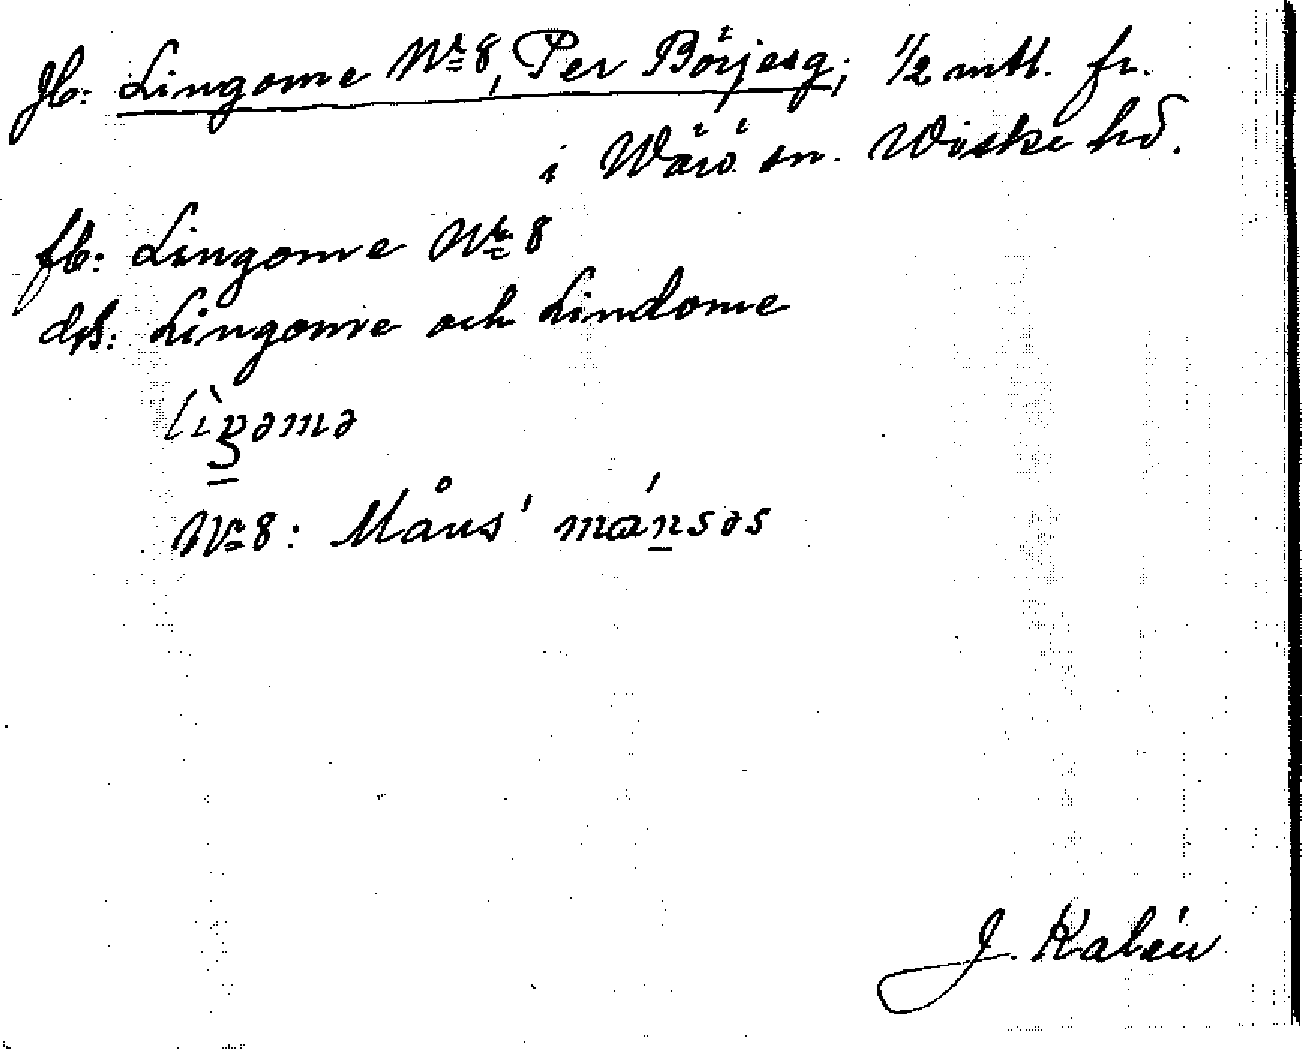 Jb: Lingome Nr 8, Per Börjesg; 1/2 mtl. fr.
i Wärö sn. Wiske hd.
fb: Lingome Nr 8
drs: Lingome och Lindome
lìŋəmə
Nr 8: Måns' mánsəs
J. Kalén